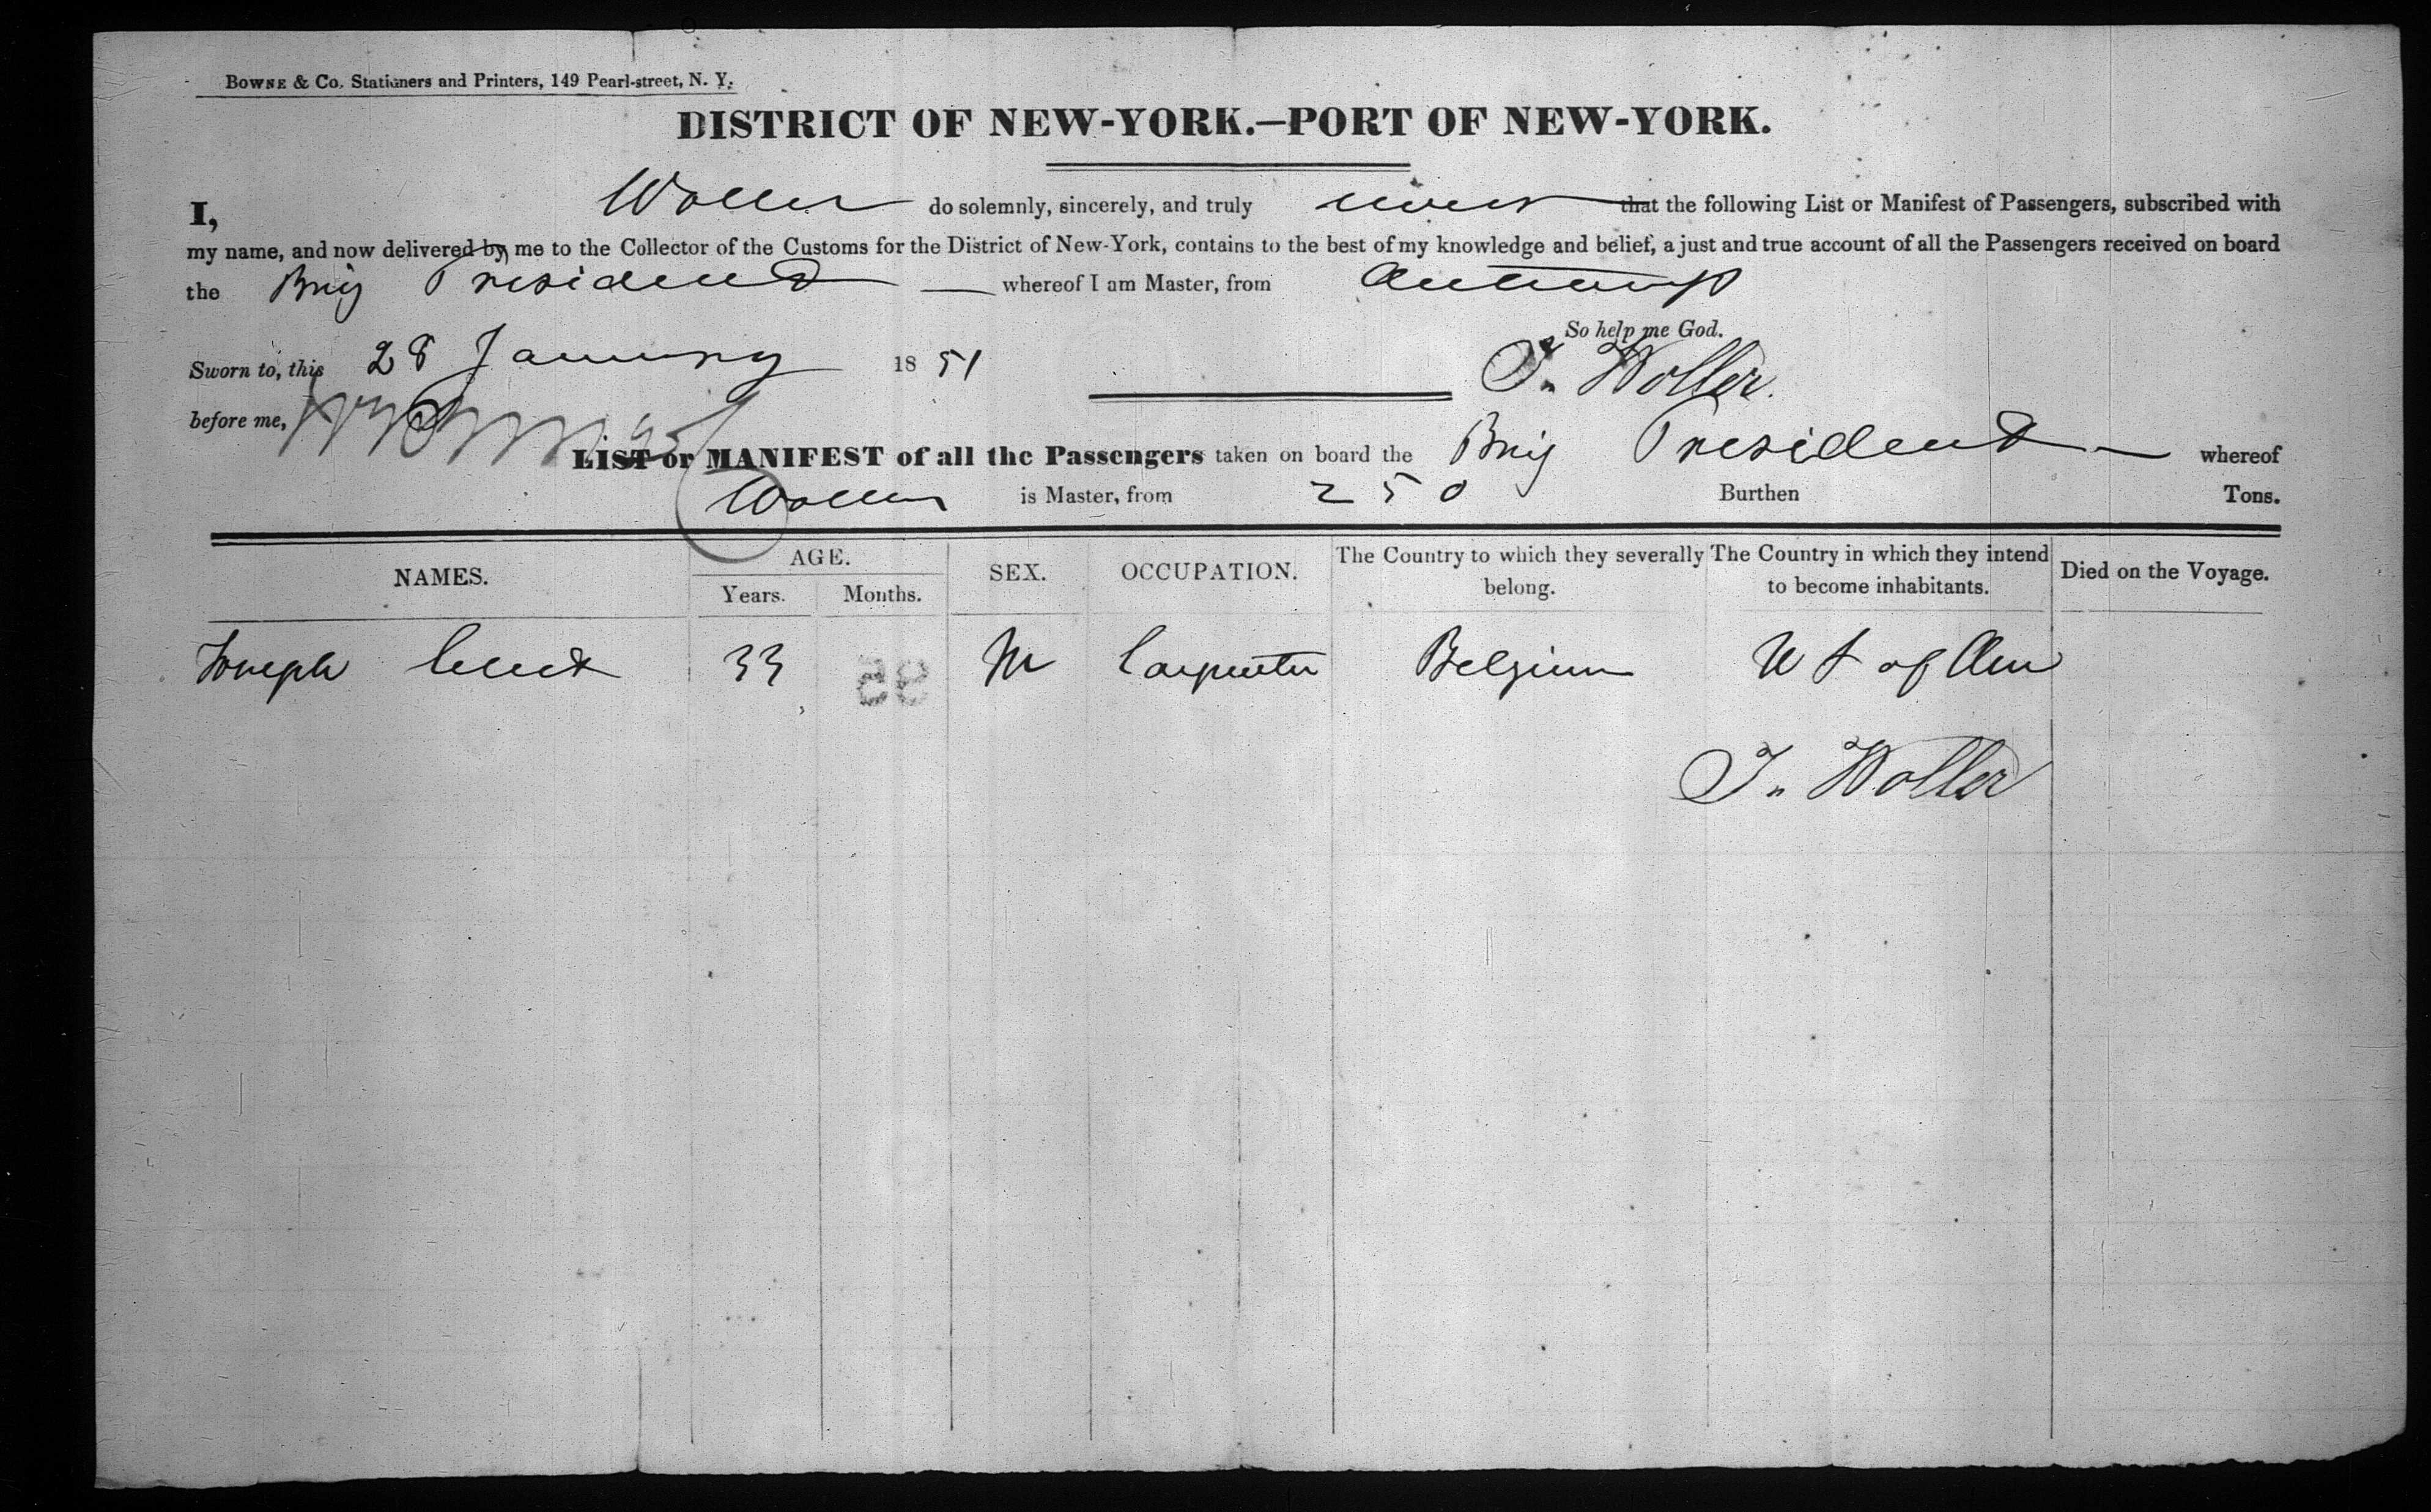 BOWNE & Co. Stationers and Printers, 149 Pearl-street, N. Y.
DISTRICT OF NEW-YORK.—PORT OF NEW-YORK.
I, Woller do solemnly, sincerely, and truly swear that the following List or Manifest of Passengers, subscribed with
my name, and now delivered by me to the Collector of the Customs for the District of New-York, contains to the best of my knowledge and belief, a just and true account of all the Passengers received on board
the Brig President whereof I am Master, from Antwerp
So help me God.
Sworn to, this 28 January 1851
J. Woller.
before me,
LIST or MANIFEST of all the Passengers taken on board the Brig President whereof
Woller is Master, from 250 Burthen Tons.
NAMES. AGE. SEX. OCCUPATION. The Country to which they severally belong. The Country in which they intend to become inhabitants. Died on the Voyage.
Years. Months.
Joseph 33 M Carpenter Belgium U S of Am
J. Woller